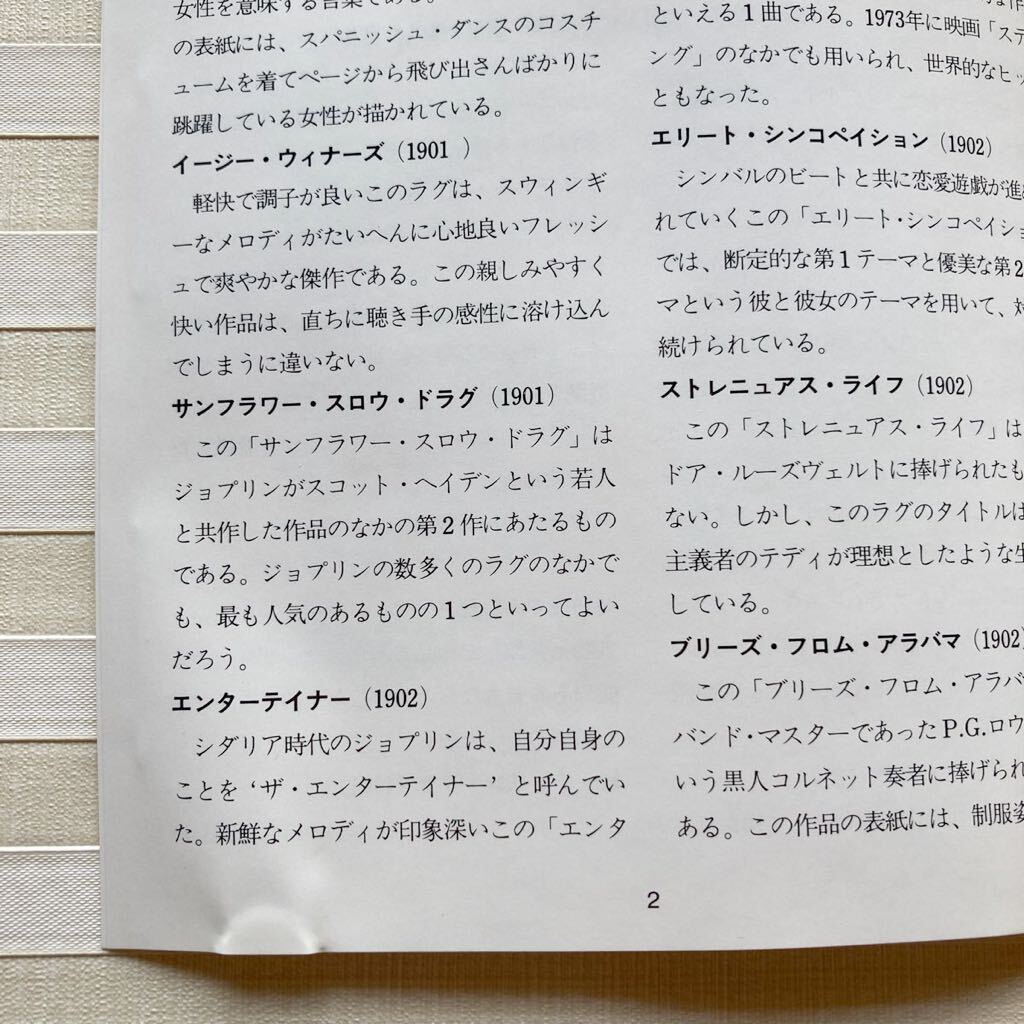 女性を意味する言葉である。
の表紙には、スパニッシュ・ダンスのコスチ
ュームを着てページから飛び出さんばかりに
跳躍している女性が描かれている。
イージー・ウィナーズ（1901 ）
軽快で調子が良いこのラグは、スウィンギ
ーなメロディがたいへんに心地良いフレッシ
ュで爽やかな傑作である。この親しみやすく
快い作品は、直ちに聴き手の感性に溶け込ん
でしまうに違いない。
サンフラワー・スロウ・ドラグ（1901）
この「サンフラワー・スロウ・ドラグ」は
ジョプリンがスコット・ヘイデンという若人
と共作した作品のなかの第2作にあたるもの
である。ジョプリンの数多くのラグのなかで
も、最も人気のあるものの1つといってよい
だろう。
エンターテイナー（1902）
シダリア時代のジョプリンは、自分自身の
ことを‘ザ・エンターテイナー’と呼んでい
た。新鮮なメロディが印象深いこの「エンタ
といえる1曲である。1973年に映画「ステ
ング」のなかでも用いられ、世界的なヒッ
ともなった。
エリート・シンコペイション（1902）
シンバルのビートと共に恋愛遊戯が進め
れていくこの「エリート・シンコペイショ
では、断定的な第1テーマと優美な第2
マという彼と彼女のテーマを用いて、対
続けられている。
ストレニュアス・ライフ（1902）
この「ストレニュアス・ライフ」は
ドア・ルーズヴェルトに捧げられたも
ない。しかし、このラグのタイトルは
主義者のテディが理想としたような生
している。
ブリーズ・フロム・アラバマ（1902）
この「ブリーズ・フロム・アラバ
バンド・マスターであったP.G.ロウ
いう黒人コルネット奏者に捧げられ
ある。この作品の表紙には、制服姿
2